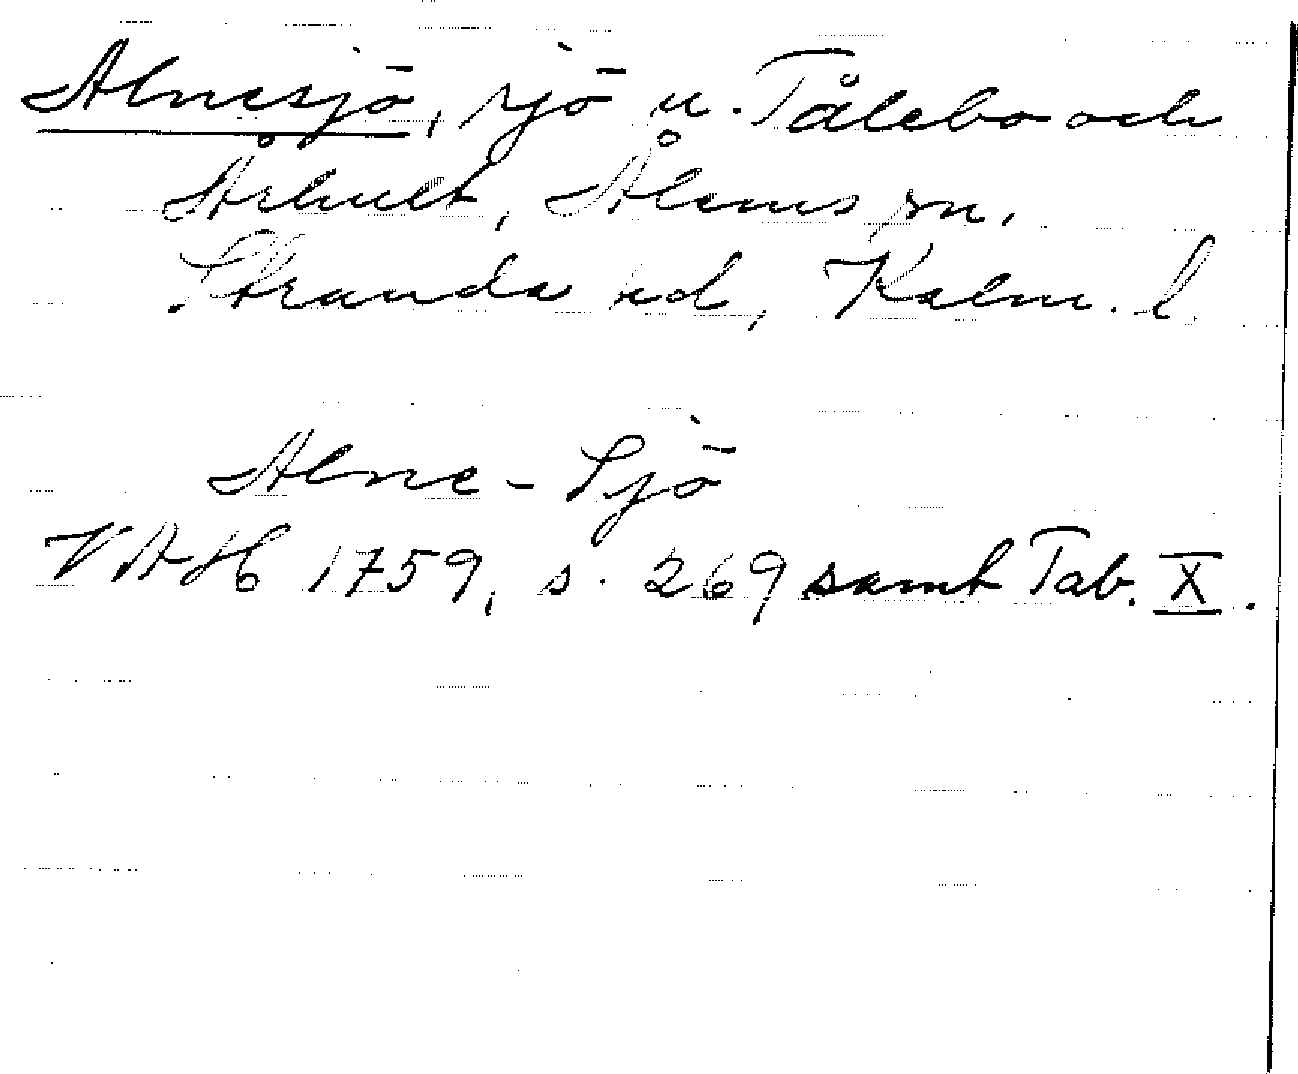 Alnesjö, sjö u. Tålebo och
Århult, Ålems sn,
Stranda hd, Kalm. l.
Alne-Sjö
VAH 1759, s. 269 samt Tab. X.